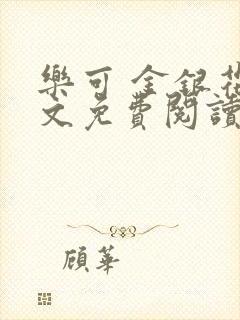 樂可 金銀花
文免費閱讀
顧華